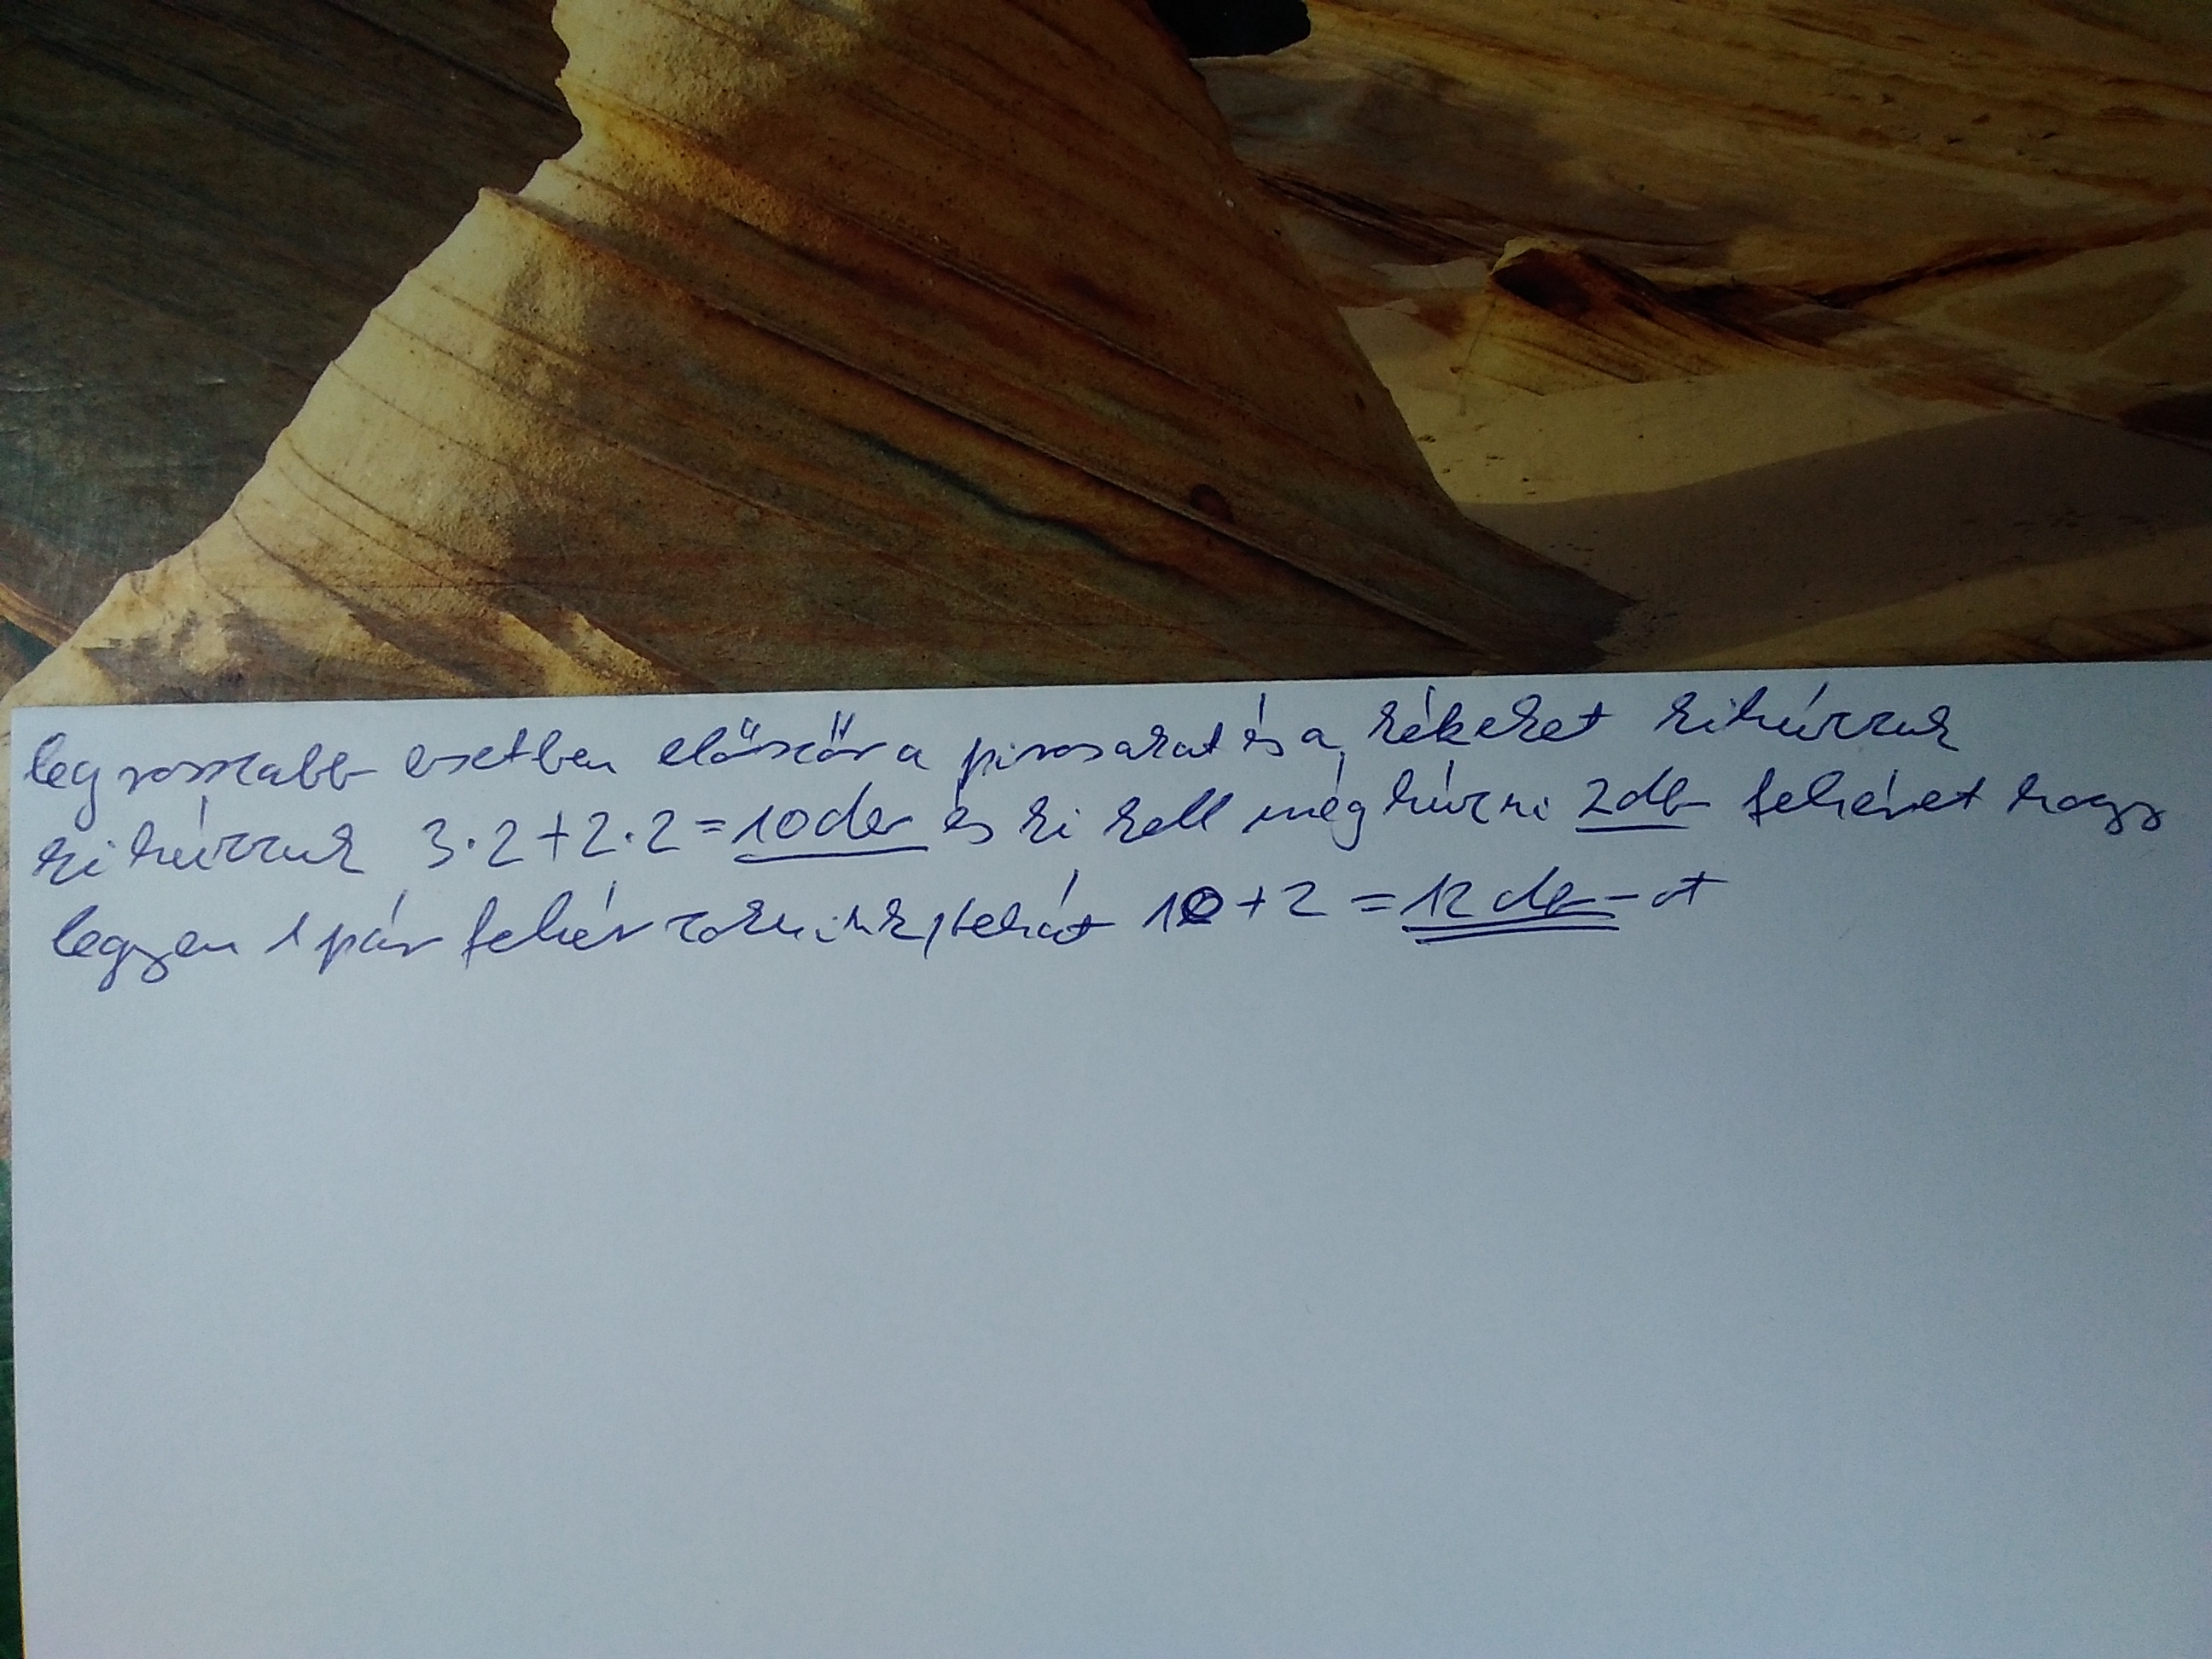 legrosszabb esetben először a pirosakat és a kékeket kihúzzuk
kihúzzuk 3·2+2·2=10db és ki kell még húzni 2db fehéret hogy
legyen 1 pár fehér zoknink, tehát 10+2=12db-ot